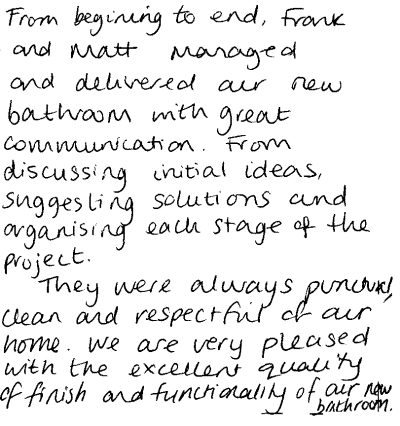 From begining to end, Frank
and Matt managed
and delivered our new
bathroom with great
communication. From
discussing initial ideas,
suggesting solutions and
organising each stage of the
project.
They were always punctual,
clean and respectful of our
home. We are very pleased
with the excellent quality
of finish and functionality of our new
bathroom.